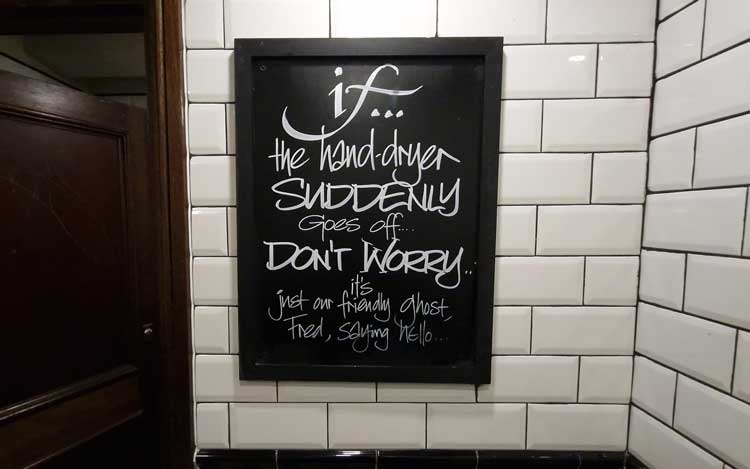 if...
the hand-dryer
SUDDENLY
Goes off....
DON'T WORRY..
it's
just our friendly ghost,
Fred, saying hello...